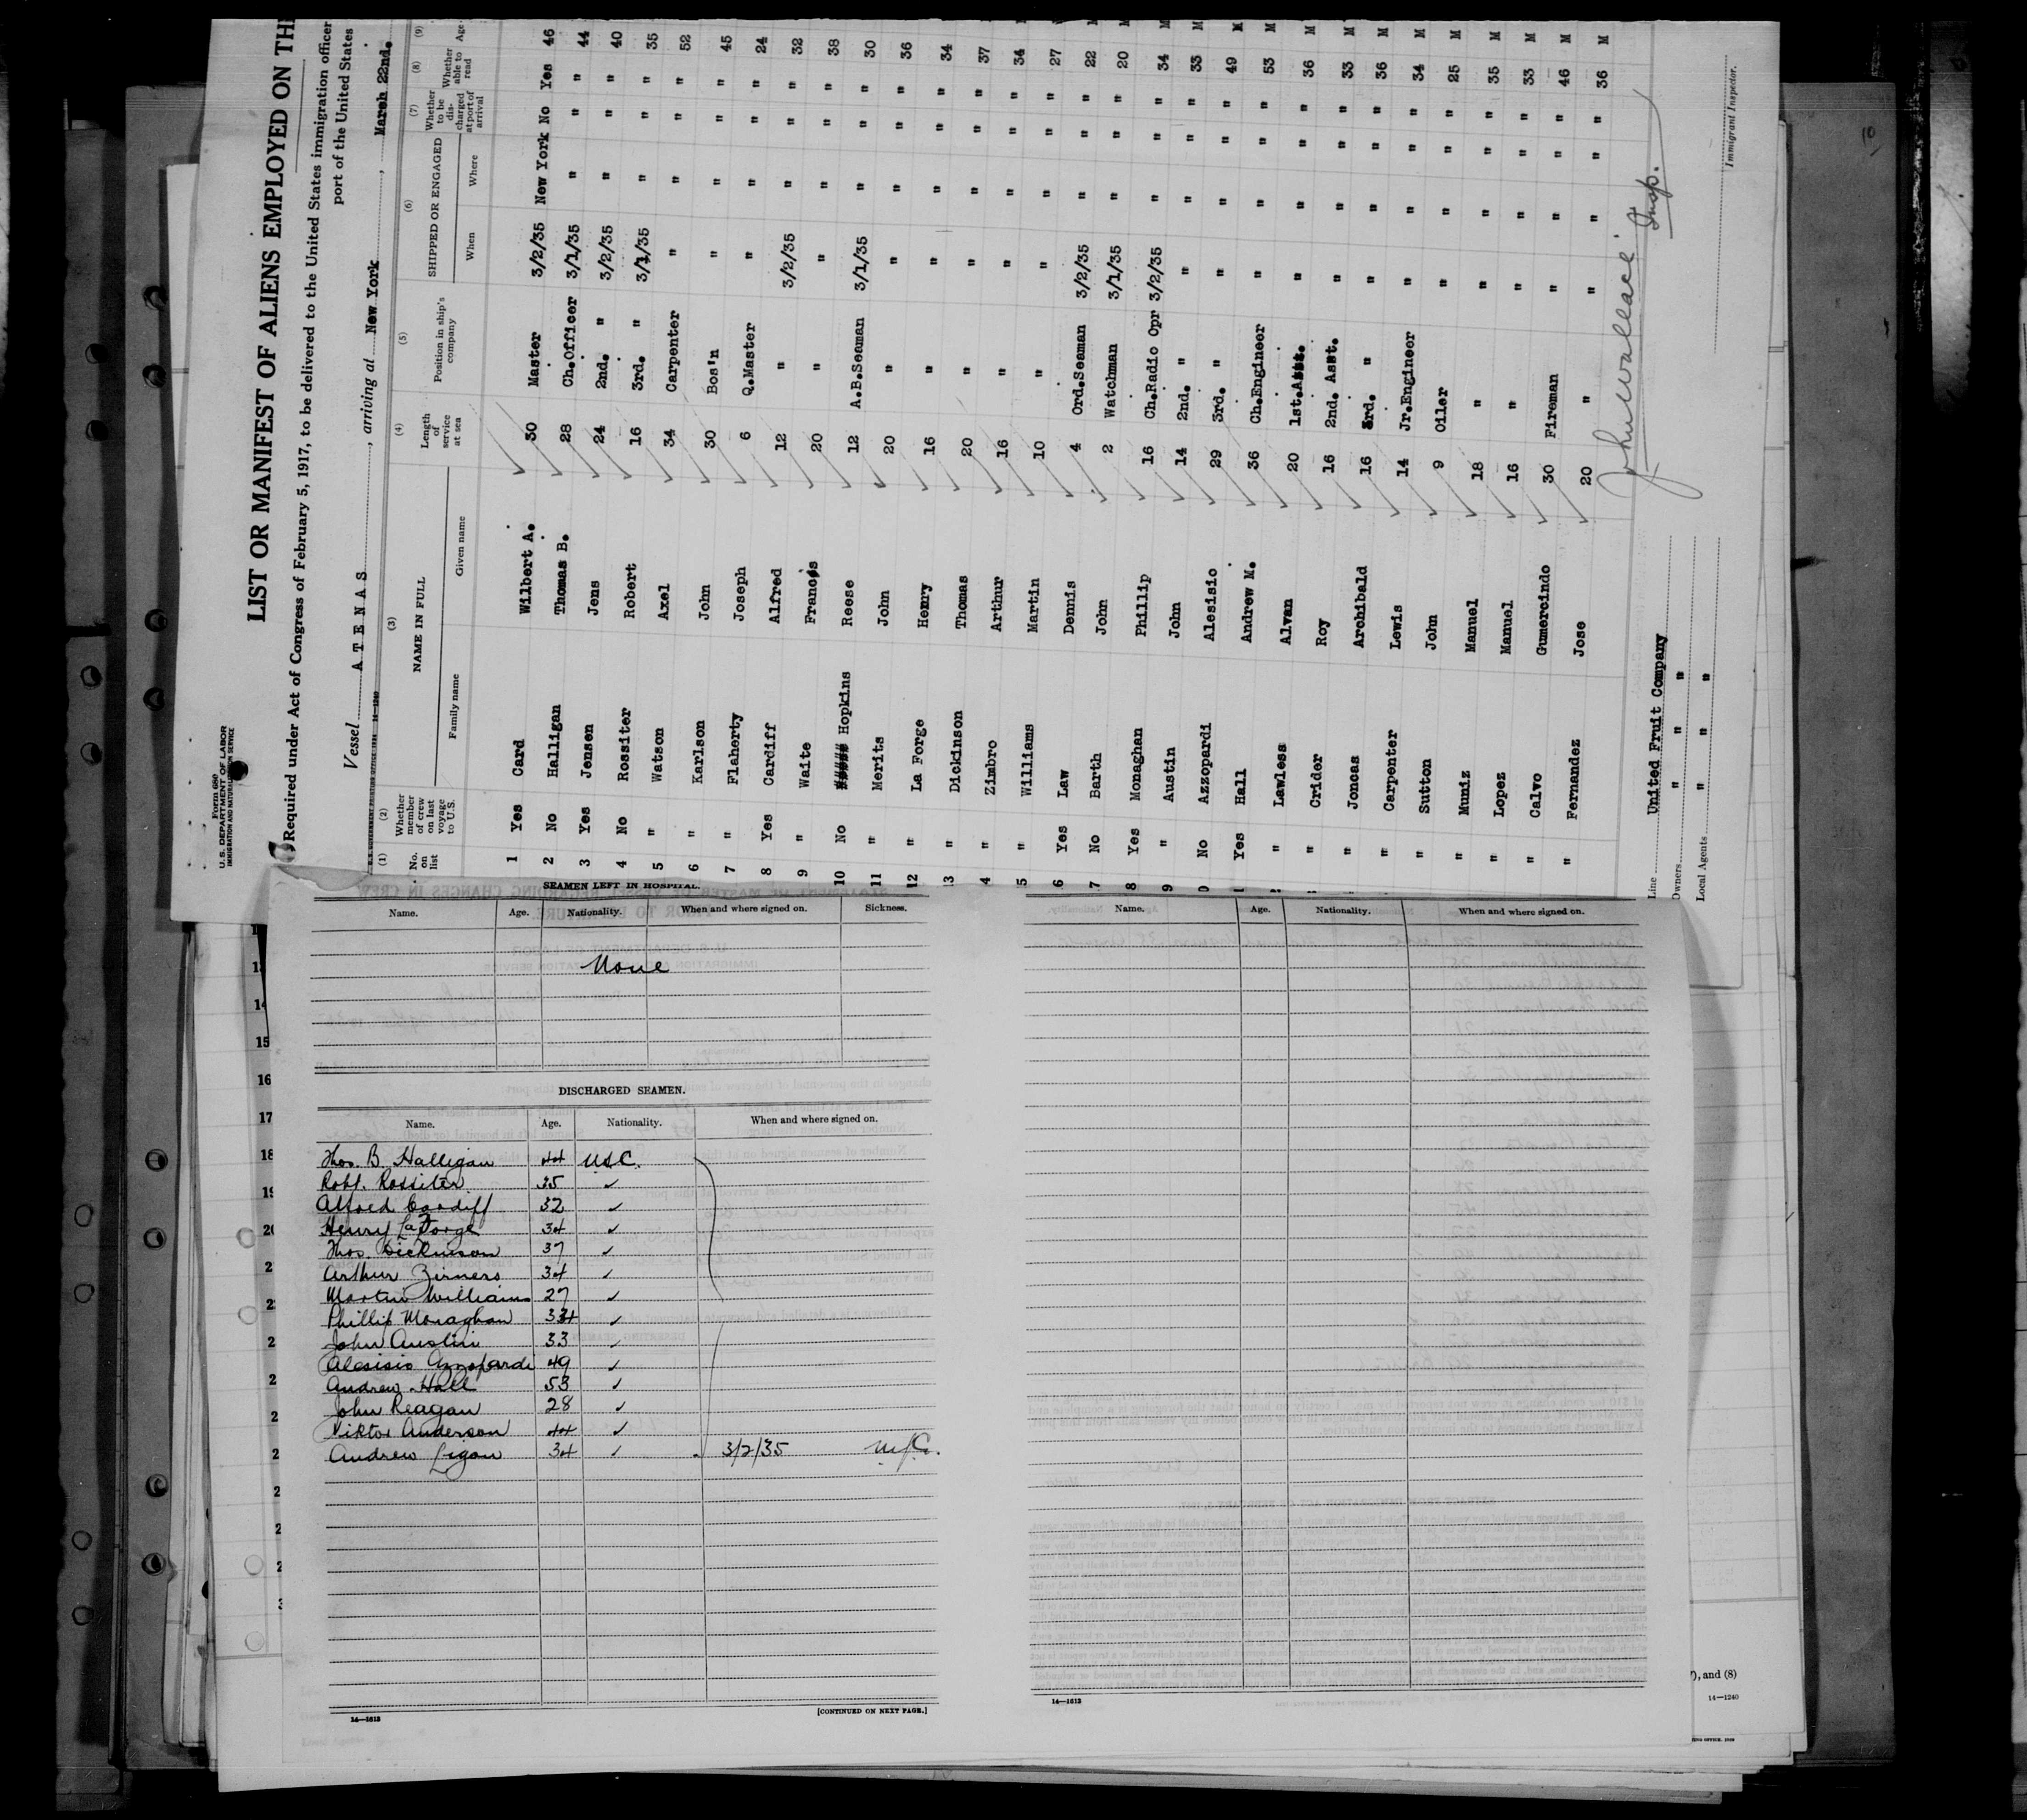 Form 680
U.S. DEPARTMENT OF LABOR
IMMIGRATION AND NATURALIZATION SERVICE
LIST OR MANIFEST OF ALIENS EMPLOYED ON TH
Required under Act of Congress of February 5, 1917, to be delivered to the United States immigration officer
port of the United States
Vessel A T E N A S, arriving at New York, March 22nd.
(1) (2) (3) (4) (5) (6) (7) (8) (9)
No. on list Whether member of crew on last voyage to U.S. NAME IN FULL Family name Given name Length of service at sea Position in ship's company SHIPPED OR ENGAGED When Where Whether to be discharged at port of arrival Whether able to read Age
1 Yes Card Wilbert A. 30 Master 3/2/35 New York No Yes 46
2 No Halligan Thomas B. 28 Ch.Officer 3/1/35 " " " 44
3 Yes Jensen Jens 24 2nd. " 3/2/35 " " " 40
4 No Rossiter Robert 16 3rd. " 3/1/35 " " " 35
5 " Watson Axel 34 Carpenter " " " " 52
6 " Karlson John 30 Bos'n " " " " 45
7 " Flaherty Joseph 6 Q.Master " " " " 24
8 Yes Cardiff Alfred 12 " 3/2/35 " " " 32
9 " Waite Francis 20 " " " " " 38
10 No Hopkins Reese 12 A.B.Seaman 3/1/35 " " " 30
11 " Merits John 20 " " " " " 36
12 " La Forge Henry 16 " " " " " 34
13 " Dickinson Thomas 20 " " " " " 37
4 " Zimbro Arthur 16 " " " " " 34
5 " Williams Martin 10 " " " " " 27
6 Yes Law Dennis 4 Ord.Seaman 3/2/35 " " " 22 M
7 No Barth John 2 Watchman 3/1/35 " " " 20 M
8 Yes Monaghan Phillip 16 Ch.Radio Opr 3/2/35 " " " 34 M
9 " Austin John 14 2nd. " " " " " 33 M
0 No Azzopardi Alesisio 29 3rd. " " " " " 49 M
Yes Hall Andrew M. 36 Ch.Engineer " " " " 53 M
" Lawless Alvan 20 1st.Asst. " " " " 36 M
" Crider Roy 16 2nd. Asst. " " " " 33 M
" Joncas Archibald 16 3rd. " " " " " 36 M
" Carpenter Lewis 14 Jr.Engineer " " " " 34 M
" Sutton John 9 Oiler " " " " 25 M
" Muniz Manuel 18 " " " " " 35 M
" Lopez Manuel 16 " " " " " 33 M
" Calvo Gumercindo 30 Fireman " " " " 46 M
" Fernandez Jose 20 " " " " " 36 M
John Wallace Insp.
Line United Fruit Company
Owners " " "
Local Agents " " "
Immigrant Inspector.
SEAMEN LEFT IN HOSPITAL.
Name. Age. Nationality. When and where signed on. Sickness.
None
DISCHARGED SEAMEN.
Name. Age. Nationality. When and where signed on.
Thos. B. Halligan 44 USC.
Robt. Rossiter 35 ✓
Alfred Cardiff 32 ✓
Henry LaForge 34 ✓
Thos. Dickinson 37 ✓
Arthur Zimero 34 ✓
Martin Williams 27 ✓
Phillip Monaghan 34 ✓
John Austin 33 ✓
Alesisio Azzopardi 49 ✓
Andrew Hall 53 ✓
John Reagan 28 ✓
Viktor Anderson 44 ✓
Andrew Ligon 34 ✓ 3/2/35
14—1613
[CONTINUED ON NEXT PAGE.]
Name. Age. Nationality. When and where signed on.
14—1613
), and (8)
14—1240
14
15
16
17
18
19